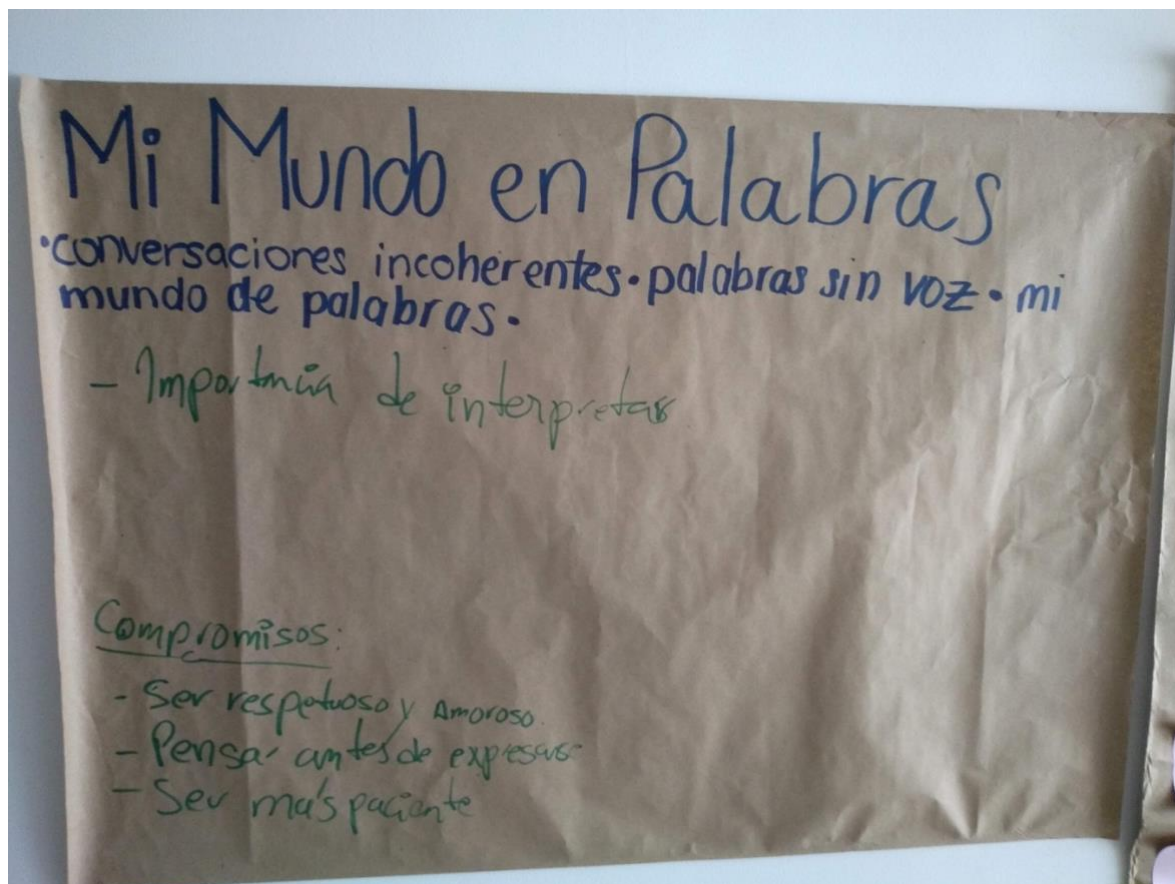 Mi Mundo en Palabras
•conversaciones incoherentes•palabras sin voz•mi
mundo de palabras•
- Importancia de interpretar
Compromisos:
- Ser respetuoso y Amoroso.
- Pensar antes de expresarse
- Ser más paciente